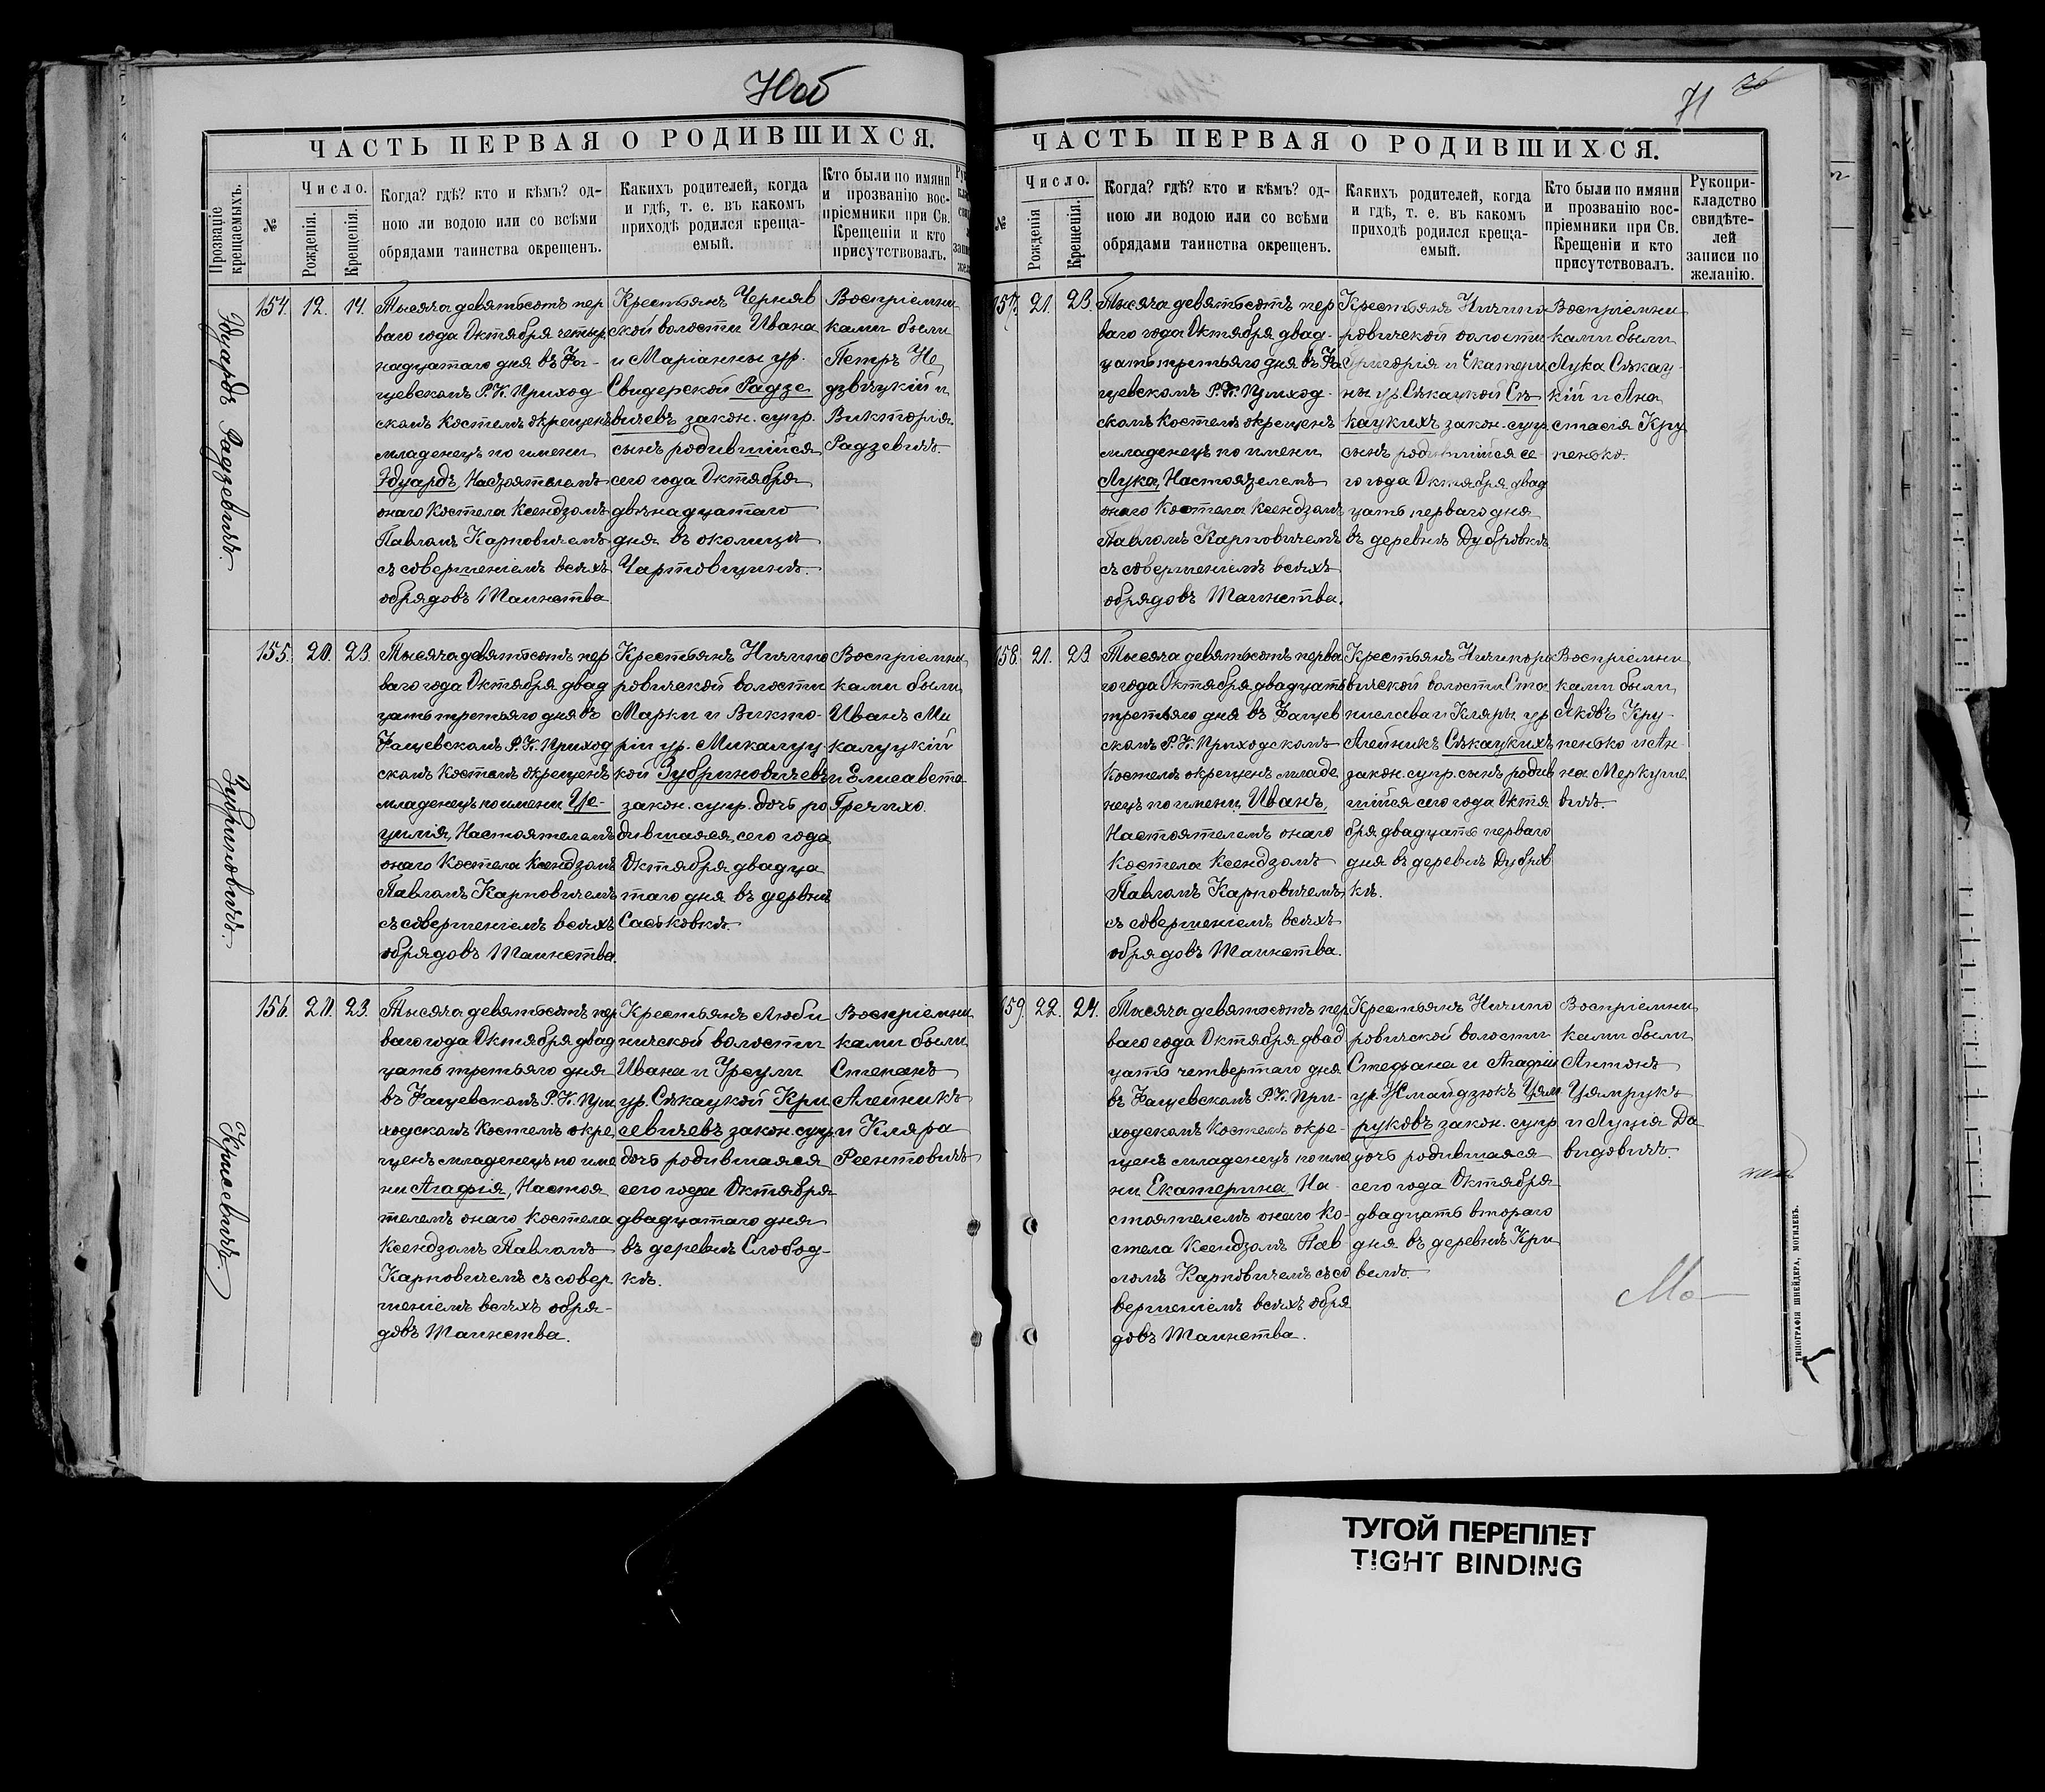 70об
ЧАСТЬ ПЕРВАЯ О РОДИВШИХСЯ.
Прозваніе крещаемыхъ.
№
Число.
Рожденія.
Крещенія.
Когда? гдѣ? кто и кѣмъ? од-
ною ли водою или со всѣми
обрядами таинства окрещенъ.
Какихъ родителей, когда
и гдѣ, т. е. въ какомъ
приходѣ родился креща-
емый.
Кто были по имяни
и прозванію вос-
пріемники при Св.
Крещеніи и кто
присутствовалъ.
Эдуардъ Радзевичъ.
154. 12. 14.
Тысяча девятьсотъ пер
ваго года Октября четыр
надцатаго дня въ Фа-
щевскомъ Р. К. Приход
скомъ Костелѣ окрещенъ
младенецъ по имени
Эдуардъ, Настоятелемъ
онаго Костела Ксендзомъ
Павломъ Карповичемъ
съ совершеніемъ всѣхъ
обрядовъ Таинства
Крестьянъ Черняв
ской волости Ивана
и Маріанны ур.
Свидерской Радзе
вичевъ закон. супр.
сынъ родившійся
сего года Октября
двѣнадцатаго
дня въ околицѣ
Чартовщинѣ.
Воспріемни
ками были
Петръ Не
дзвѣцкій и
Викторія
Радзевичъ.
Зубриновичъ.
155. 20. 23.
Тысяча девятьсотъ пер
ваго года Октября двад
цать третьяго дня въ
Фащевскомъ Р. К. Приход
скомъ Костелѣ окрещенъ
младенецъ по имени Це-
цилія, Настоятелемъ
онаго Костела Ксендзомъ
Павломъ Карповичемъ
съ совершеніемъ всѣхъ
обрядовъ Таинства.
Крестьянъ Ничипо
ровичской волости
Марки и Викто-
ріи ур. Микалуц
кой Зубриновичевъ
закон. супр. дочь ро
дившаяся сего года
Октября двадца
таго дня въ деревнѣ
Саськовкѣ.
Воспріемни
ками были
Иванъ Ми
калуцкій
и Елисавета
Гречихо.
Крисевичъ.
156. 20. 23.
Тысяча девятьсотъ пер
ваго года Октября двад
цать третьяго дня
въ Фащевскомъ Р. К. При
ходскомъ Костелѣ окре
щенъ младенецъ по име
ни Агафія, Настоя
телемъ онаго Костела
Ксендзомъ Павломъ
Карповичемъ съ совер
шеніемъ всѣхъ обря-
довъ Таинства.
Крестьянъ Люби
ничской волости
Ивана и Урсули
ур. Сѣкацкой Кри
севичевъ закон. супр
дочь родившаяся
сего года Октября
двадцатаго дня
въ деревнѣ Слобод-
кѣ.
Воспріемни
ками были
Степанъ
Алейникъ
и Кляра
Реентовичъ
71
ЧАСТЬ ПЕРВАЯ О РОДИВШИХСЯ.
№
Число.
Рожденія
Крещенія.
Когда? гдѣ? кто и кѣмъ? од-
ною ли водою или со всѣми
обрядами таинства окрещенъ.
Какихъ родителей, когда
и гдѣ, т. е. въ какомъ
приходѣ родился креща-
емый.
Кто были по имяни
и прозванію вос-
пріемники при Св.
Крещеніи и кто
присутствовалъ.
Рукопри-
кладство
свидѣте-
лей
записи по
желанію.
157. 21. 23.
Тысяча девятьсотъ пер
ваго года Октября двад-
цать третьяго дня въ Фа
щевскомъ Р. К. Приход-
скомъ Костелѣ окрещенъ
младенецъ по имени
Лука, Настоятелемъ
онаго Костела Ксендзомъ
Павломъ Карповичемъ
съ совершеніемъ всѣхъ
обрядовъ Таинства.
Крестьянъ Ничипо
ровичской волости
Григорія и Екатери
ны ур. Сѣкацкой Сѣ
кацкихъ закон. супр
сынъ родившійся се-
го года Октября двад
цать перваго дня
въ деревнѣ Дубровкѣ
Воспріемни
ками были
Лука Сѣкац-
кій и Ана
стасія Кру
пенько.
158. 21. 23.
Тысяча девятьсотъ перва
го года Октября двадцать
третьяго дня въ Фащев
скомъ Р. К. Приходскомъ
Костелѣ окрещенъ младе
нецъ по имени Иванъ,
Настоятелемъ онаго
Костела Ксендзомъ
Павломъ Карповичемъ
съ совершеніемъ всѣхъ
обрядовъ Таинства.
Крестьянъ Ничипоро
вичской волости Ста
нислава и Кляры ур
Алейникъ Сѣкацкихъ
закон. супр. сынъ родив
шійся сего года Октя
бря двадцать перваго
дня въ деревнѣ Дубров
кѣ.
Воспріемни
ками были
Яковъ Кру-
пенько и Ан-
на Меркуше
вичъ.
159. 22. 24.
Тысяча девятьсотъ пер
ваго года Октября двад
цать четвертаго дня
въ Фащевскомъ Р. К. При-
ходскомъ Костелѣ окре-
щенъ младенецъ по име
ни Екатерина На-
стоятелемъ онаго Ко-
стела Ксендзомъ Пав
ломъ Карповичемъ съ со
вершеніемъ всѣхъ обря
довъ Таинства.
Крестьянъ Ничипо
ровичской волости
Стефана и Агафіи
ур. Жмайдзюкъ Цям
руковъ закон. супр
дочь родившаяся
сего года Октября
двадцать втораго
дня въ деревнѣ Кри
велѣ.
Воспріемни
ками были
Антонъ
Цямрукъ
и Луція Да
видовичъ.
ТИПОГРАФІЯ ШНЕЙДЕРА, МОГИЛЕВЪ.
ТУГОЙ ПЕРЕПЛЕТ
TIGHT BINDING